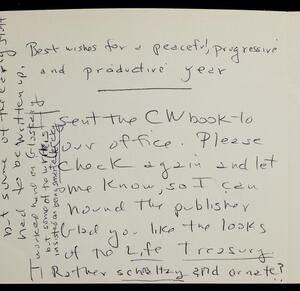 Best wishes for a peaceful, progressive
and productive year
sent the CW book to
our office. Please
check again and let
me know, so I can
hound the publisher
Glad you like the looks
of to Life Treasury
Rather schmaltzy and ornate?
but some of the early stuff
had to be written up.
I worked hard on
but some of the
insisted on being